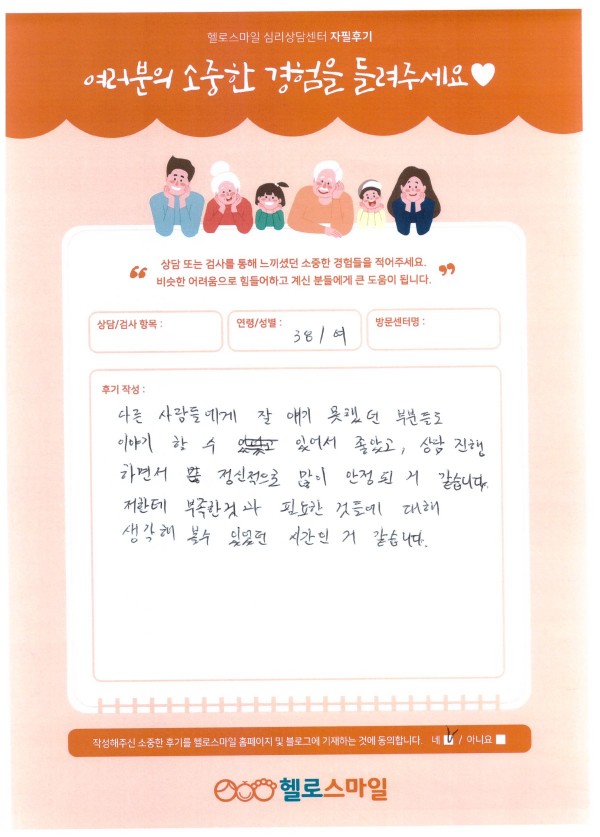 헬로스마일 심리상담센터 자필후기
여러분의 소중한 경험을 들려주세요
상담 또는 검사를 통해 느끼셨던 소중한 경험들을 적어주세요.
“ 비슷한 어려움으로 힘들어하고 계신 분들에게 큰 도움이 됩니다. ”
상담/검사 항목 :
연령/성별 : 38 / 여
방문센터명 :
후기 작성 :
다른 사람들에게 잘 얘기 못했던 부분들도
이야기 할 수 있어서 좋았고, 상담 진행
하면서 정신적으로 많이 안정된 거 같습니다.
저한테 부족한것과 필요한 것들에 대해
생각해 볼수 있었던 시간인 거 같습니다.
작성해주신 소중한 후기를 헬로스마일 홈페이지 및 블로그에 기재하는 것에 동의합니다. 네 / 아니요
헬로스마일